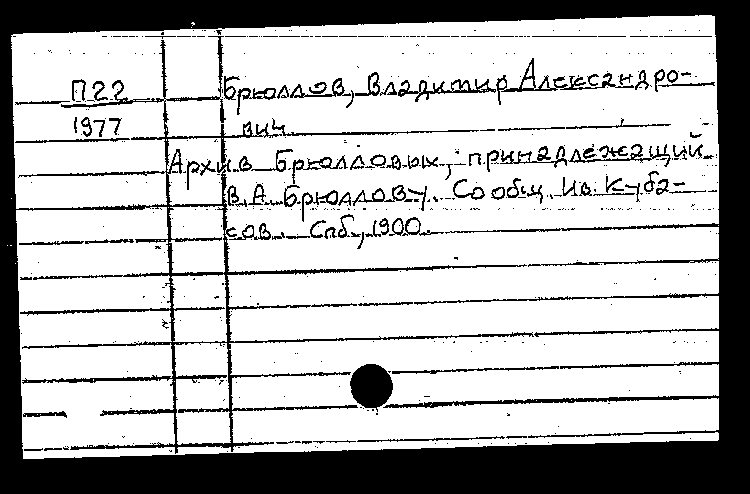 П22 Брюллов, Владимир Александро-
1977 вич
Архив Брюлловых, принадлежащий
В.А. Брюллову. Сообщ. Ив. Куба-
сов. Спб., 1900.